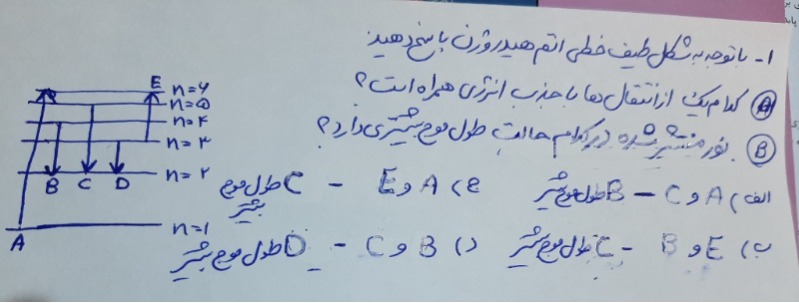 ۱- با توجه به شکل طیف خطی اتم هیدروژن پاسخ دهید
A کدام یک از انتقال ها با جذب انرژی همراه است؟
B نور منتشر شده در کدام حالت طول موج بیشتری دارد؟
الف) A و C - B طول موج بیشتر
ج) A و E - C طول موج بیشتر
ب) E و B - C طول موج بیشتر
د) B و C - D طول موج بیشتر
E
n=۶
n=۵
n=۴
n=۳
n=۲
B C D
n=۱
A